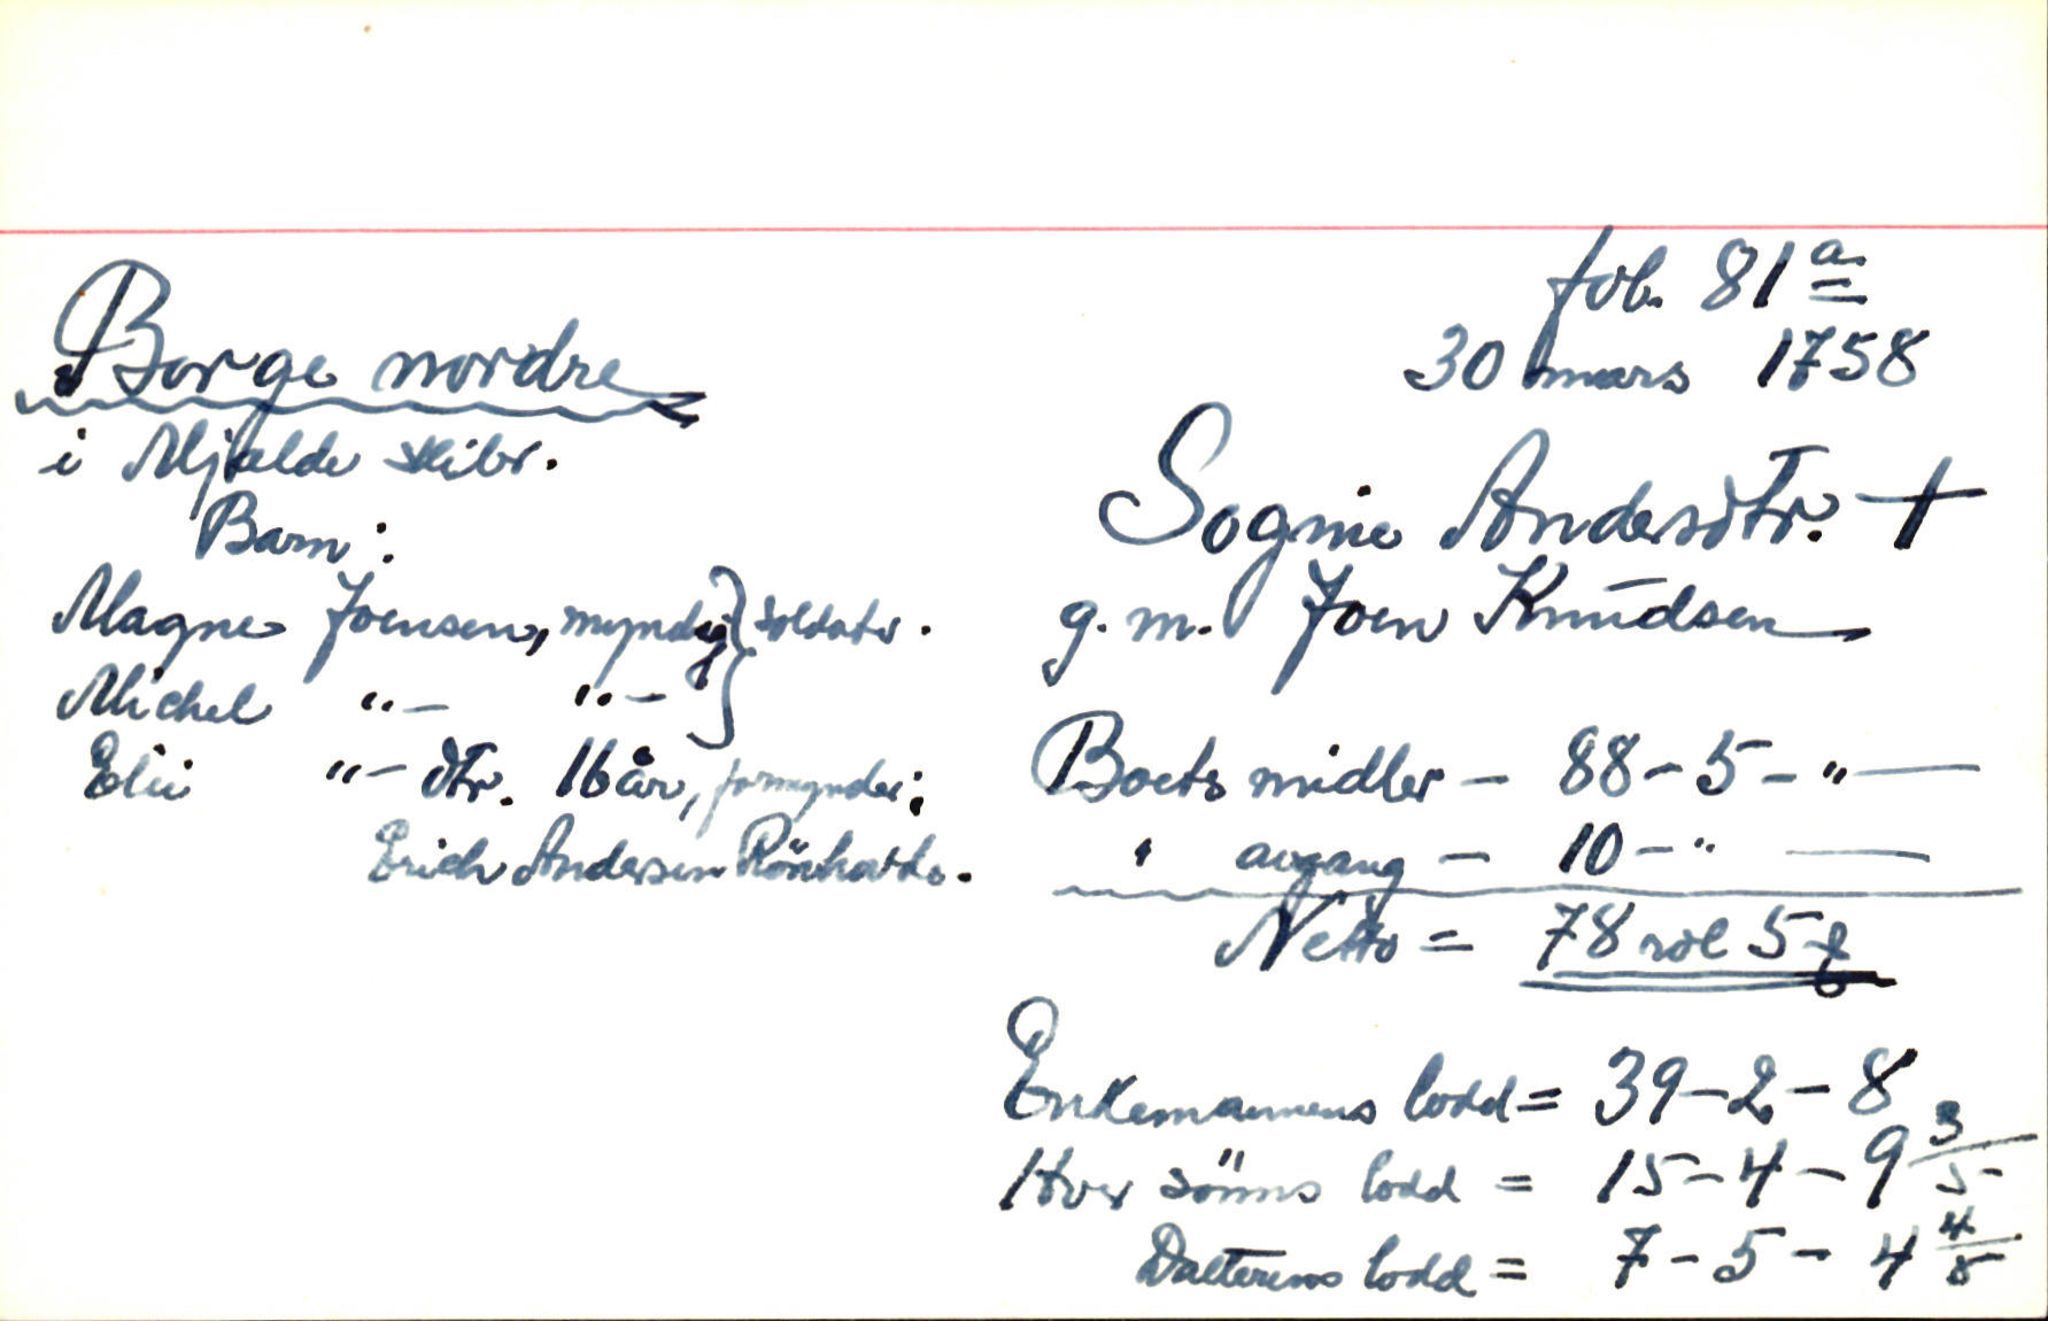 fol. 81 a
30 mars 1758
Borge nordre
i Mjelde skibr.
Barn:
Magne Joensen, myndig } soldater.
Michel "- "-
Elii "- dtr. 16 år, formynder;
Erich Andersen
Sogni Andersdtr. +
g. m. Joen Knudsen
Boets midler - 88 - 5 - " -
" avgang - 10 - " -
Netto = 78 rdl 5
Enkemannens lodd = 39 - 2 - 8
Hver sönns lodd = 15 - 4 - 9 3/5
Datterens lodd = 7 - 5 - 4 4/5